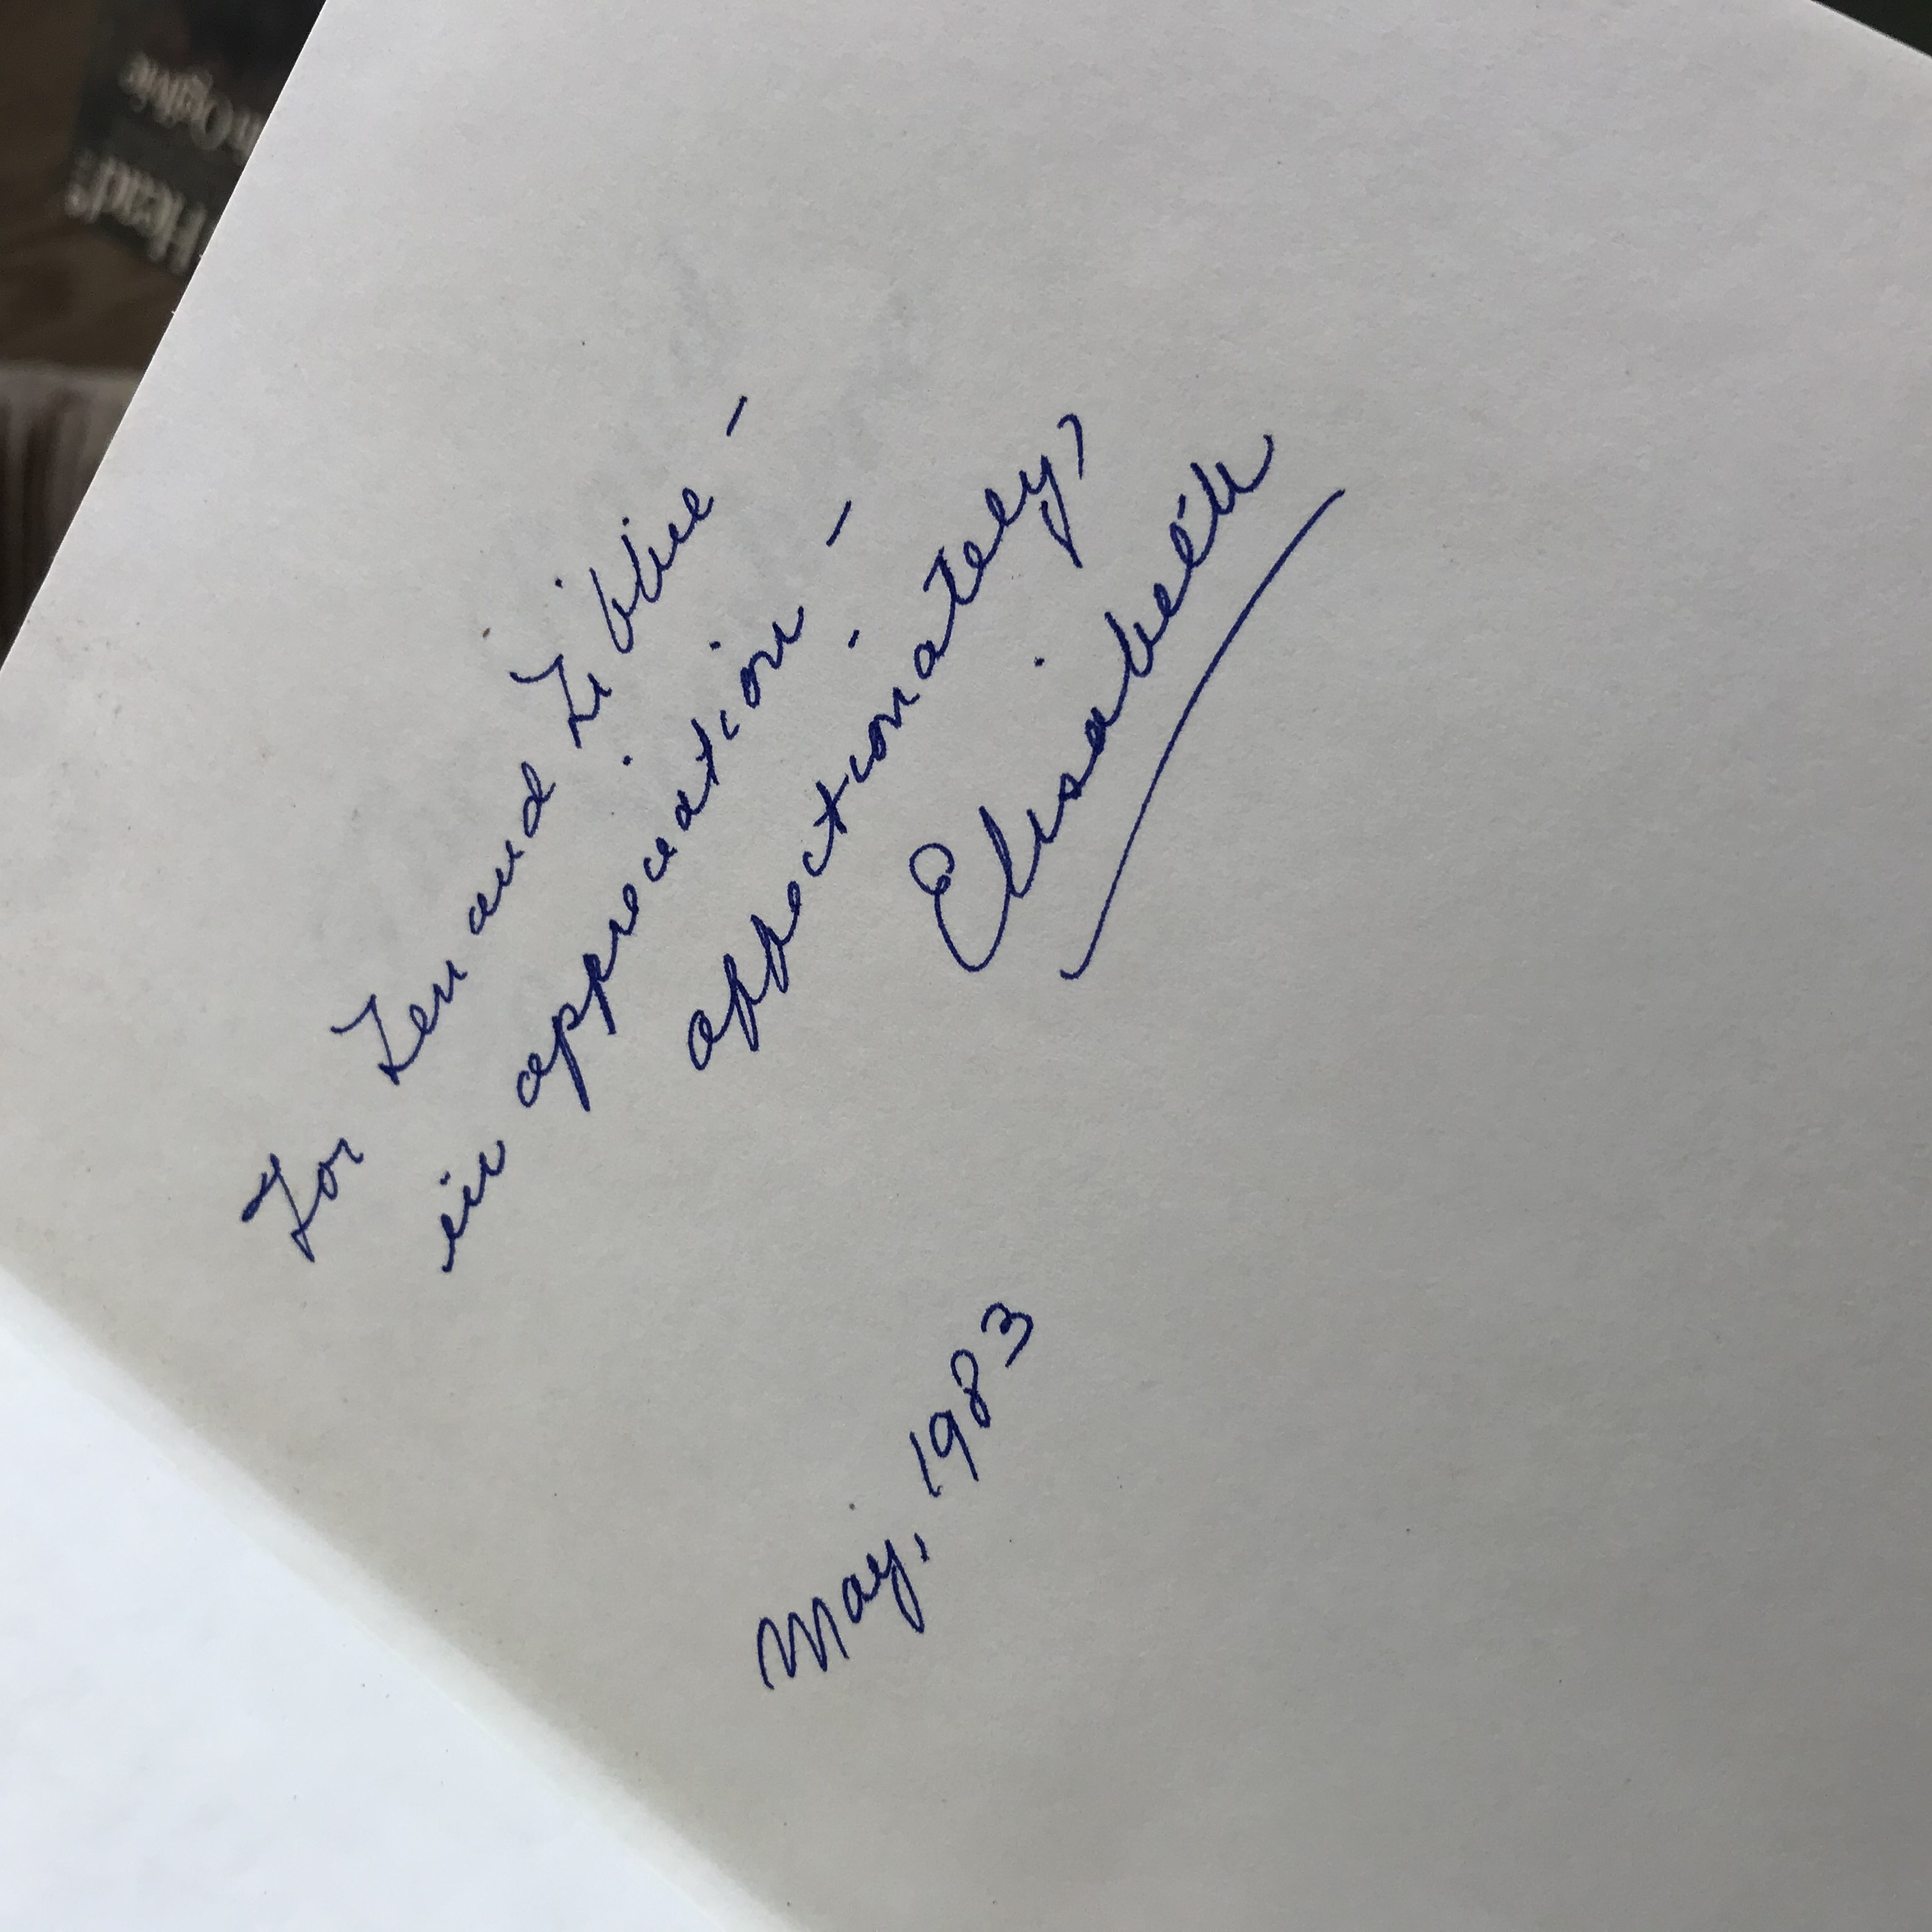 For Len and Libbie –
in appreciation –
affectionately,
Elisabeth
May, 1983
Head"
Ogilvie